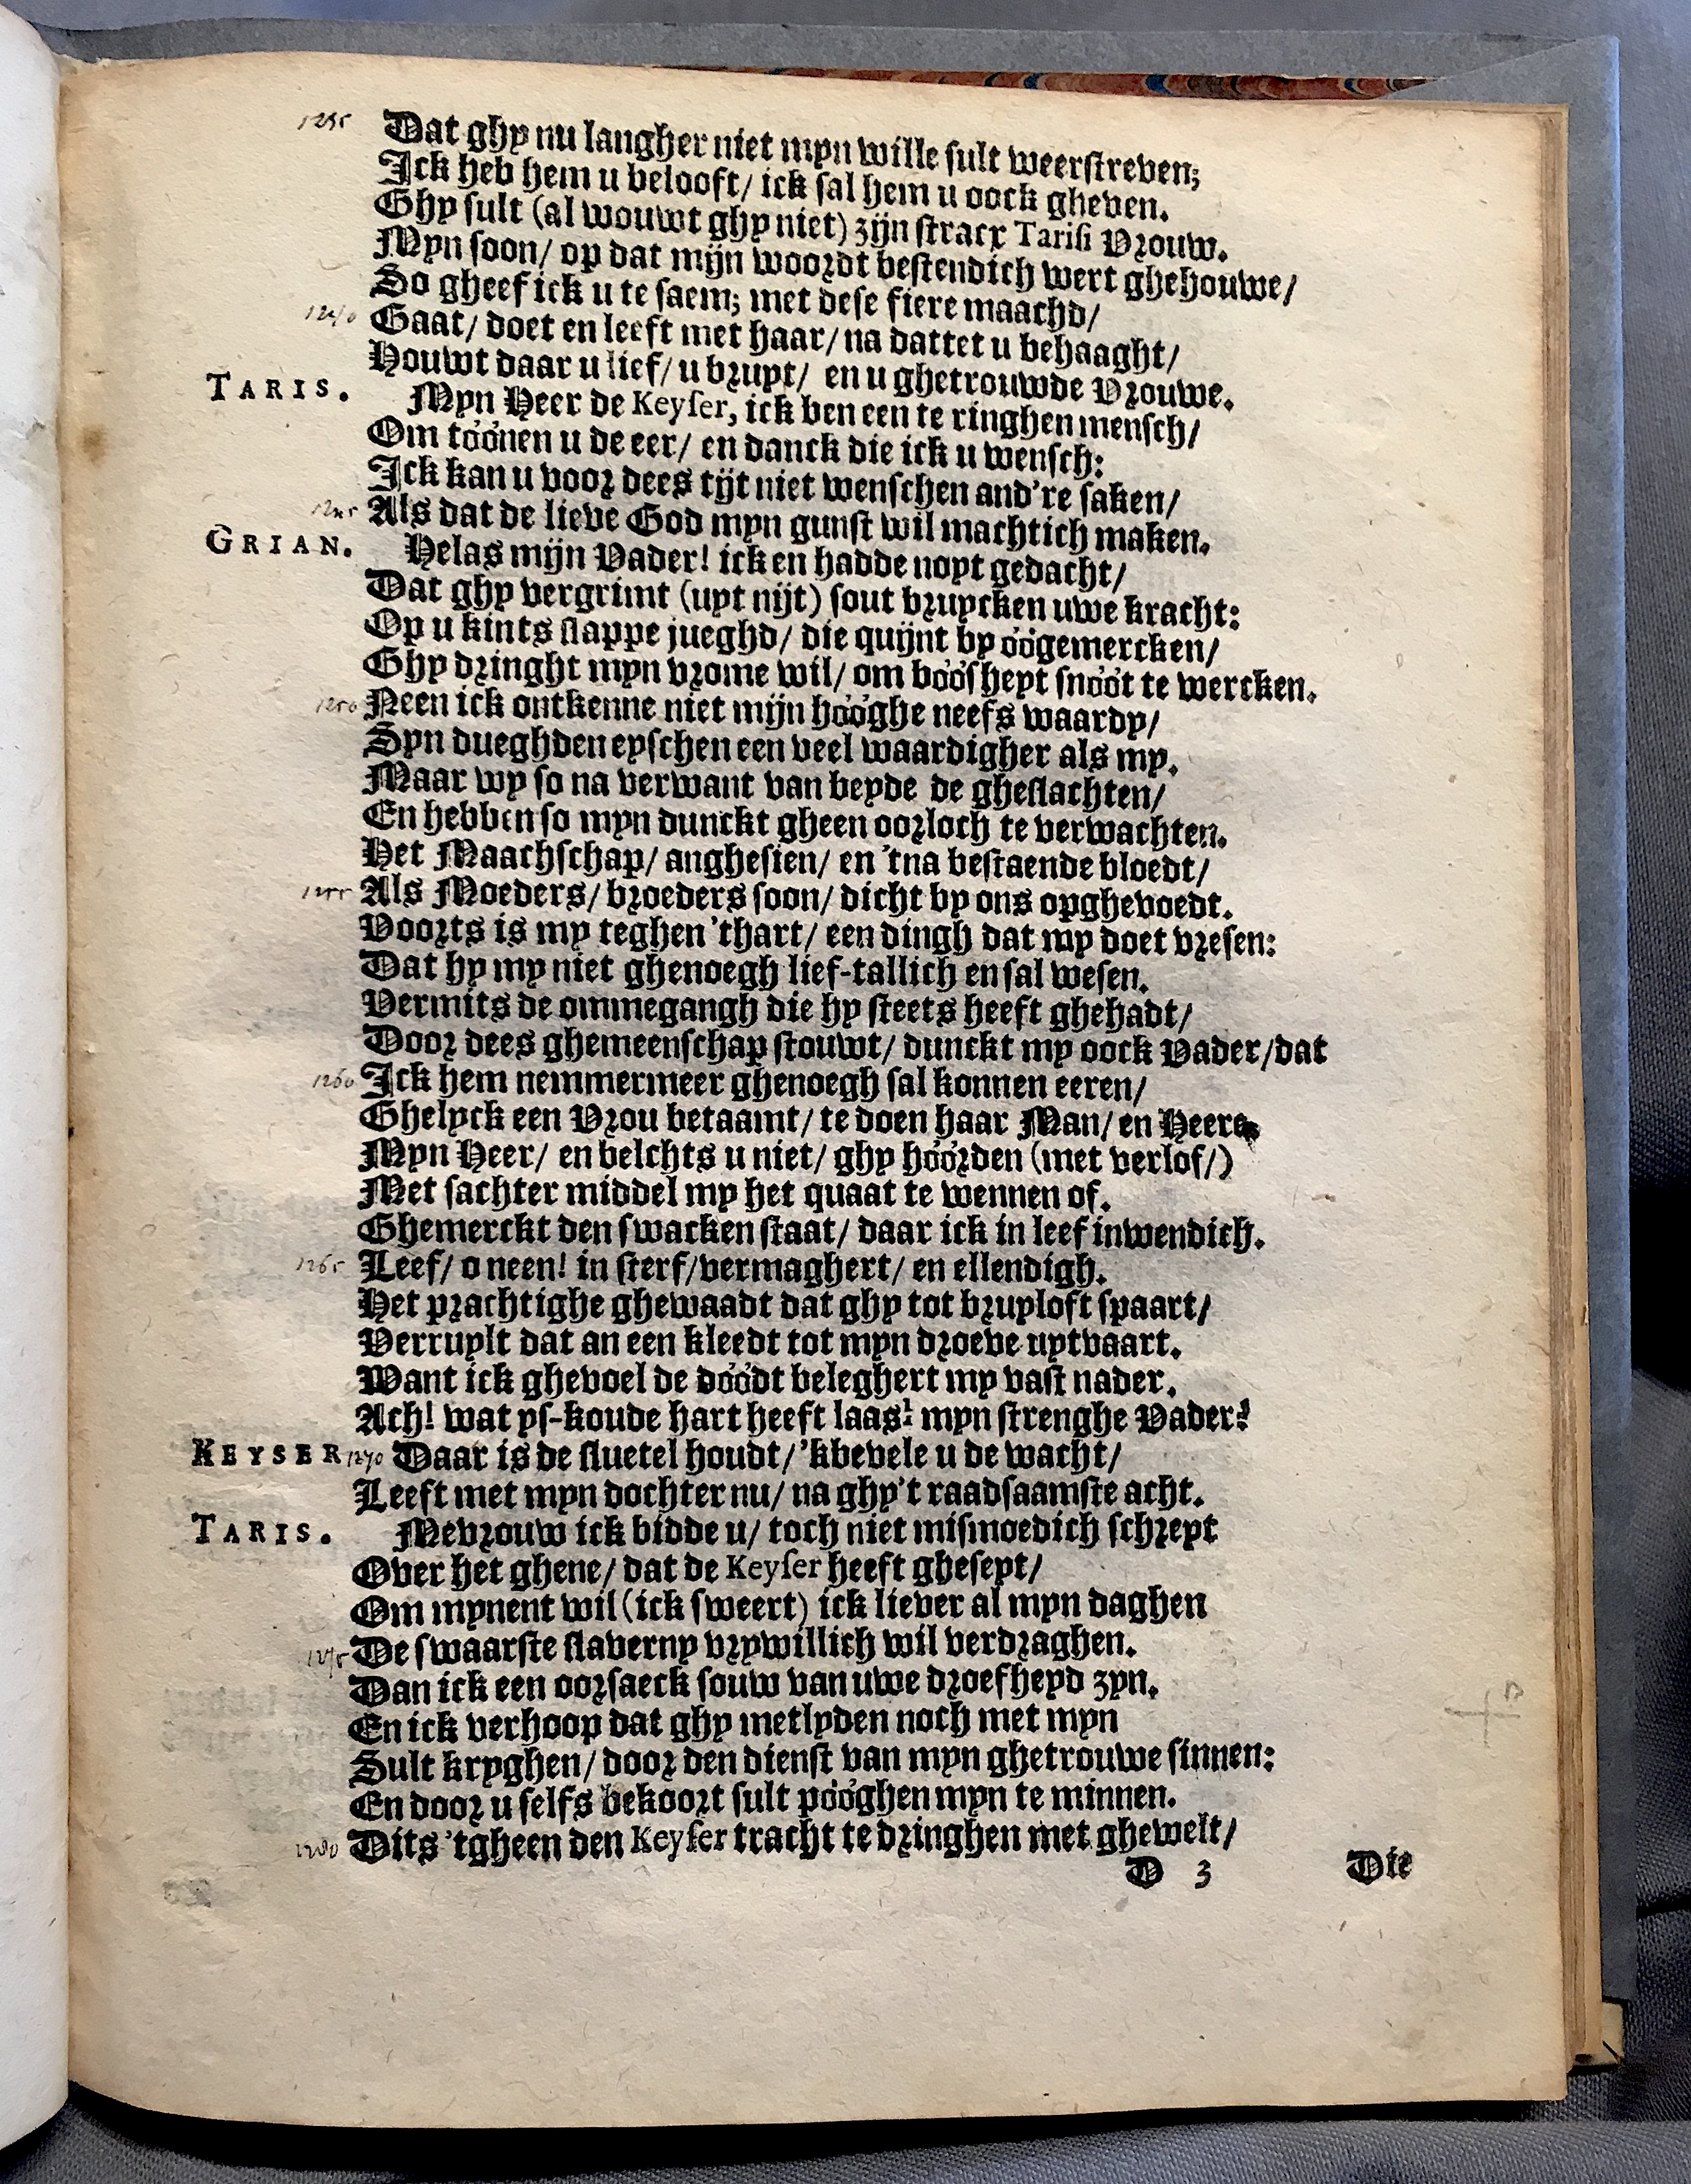 1235 Dat ghy nu langher niet myn wille sult weerstreven;
Ick heb hem u belooft/ ick sal hem u oock gheven.
Ghy sult (al wouwt ghy niet) zijn stracx Tarisi Vrouw.
Myn soon/ op dat mijn woordt bestendich wert ghehouwe/
So gheef ick u te saem; met dese fiere maachd/
1240 Gaat/ doet en leeft met haar/ na dattet u behaaght/
Houwt daar u lief/ u bruyt/ en u ghetrouwde Vrouwe.
TARIS. Myn Heer de Keyser, ick ben een te ringhen mensch/
Om tóónen u de eer/ en danck die ick u wensch:
Ick kan u voor dees tijt niet wenschen and're saken/
1245 Als dat de lieve God myn gunst wil machtich maken.
GRIAN. Helas mijn Vader! ick en hadde noyt gedacht/
Dat ghy vergrimt (uyt nijt) sout bruycken uwe kracht:
Op u kints slappe jueghd/ die quijnt by óógemercken/
Ghy dringht myn vrome wil/ om bóósheyt snóót te wercken.
1250 Neen ick ontkenne niet mijn hóóghe neefs waardy/
Syn dueghden eyschen een veel waardigher als my.
Maar wy so na verwant van beyde de gheslachten/
En hebben so myn dunckt gheen oorloch te verwachten.
Het Maachschap/ anghesien/ en 'tna bestaende bloedt/
1255 Als Moeders/ broeders soon/ dicht by ons opghevoedt.
Voorts is my teghen 'thart/ een dingh dat my doet vresen:
Dat hy my niet ghenoegh lief-tallich en sal wesen.
Vermits de ommegangh die hy steets heeft ghehadt/
Door dees ghemeenschap stouwt/ dunckt my oock Vader/dat
1260 Ick hem nemmermeer ghenoegh sal konnen eeren/
Ghelyck een Vrou betaamt/ te doen haar Man/ en Heere.
Myn Heer/ en belchts u niet/ ghy hóórden (met verlof/)
Met sachter middel my het quaat te wennen of.
Ghemerckt den swacken staat/ daar ick in leef inwendich.
1265 Leef/ o neen! in sterf/vermaghert/ en ellendigh.
Het prachtighe ghewaadt dat ghy tot bruyloft spaart/
Verruylt dat an een kleedt tot myn droeve uytvaart.
Want ick ghevoel de dóódt beleghert my vast nader.
Ach! wat ys-koude hart heeft laas! myn strenghe Vader!
KEYSER 1270 Daar is de sluetel houdt/ 'kbevele u de wacht/
Leeft met myn dochter nu/ na ghy't raadsaamste acht.
TARIS. Mevrouw ick bidde u/ toch niet mismoedich schreyt
Over het ghene/ dat de Keyser heeft gheseyt/
Om mynent wil (ick sweert) ick liever al myn daghen
1275 De swaarste slaverny vrywillich wil verdraghen.
Dan ick een oorsaeck souw van uwe droefheyd zyn.
En ick verhoop dat ghy metlyden noch met myn
Sult kryghen/ door den dienst van myn ghetrouwe sinnen:
En door u selfs bekoort sult póóghen myn te minnen.
1280 Dits 'tgheen den Keyser tracht te dringhen met ghewelt/
D 3 Die